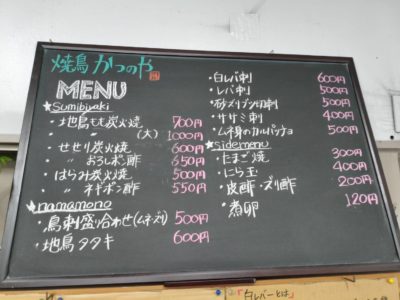 焼鳥 かつのや
MENU
★Sumibiyaki
・地鳥もも炭火焼 700円
・ 〃 〃 (大) 1000円
・せせり炭火焼 600円
・ 〃 おろしポン酢 650円
・はらみ炭火焼 500円
・ 〃 ネギポン酢 550円
★namamono
・鳥刺盛り合わせ(ムネ・ズリ) 500円
・地鳥タタキ 600円
・白レバ刺 600円
・レバ刺 500円
・砂ズリブツ切刺 500円
・ササミ刺 400円
・ムネ身のカルパッチョ 500円
★Sidemenu
・たまご焼 300円
・にら玉 400円
・皮酢・ズリ酢 200円
・煮卵 120円
「白レバーとは」